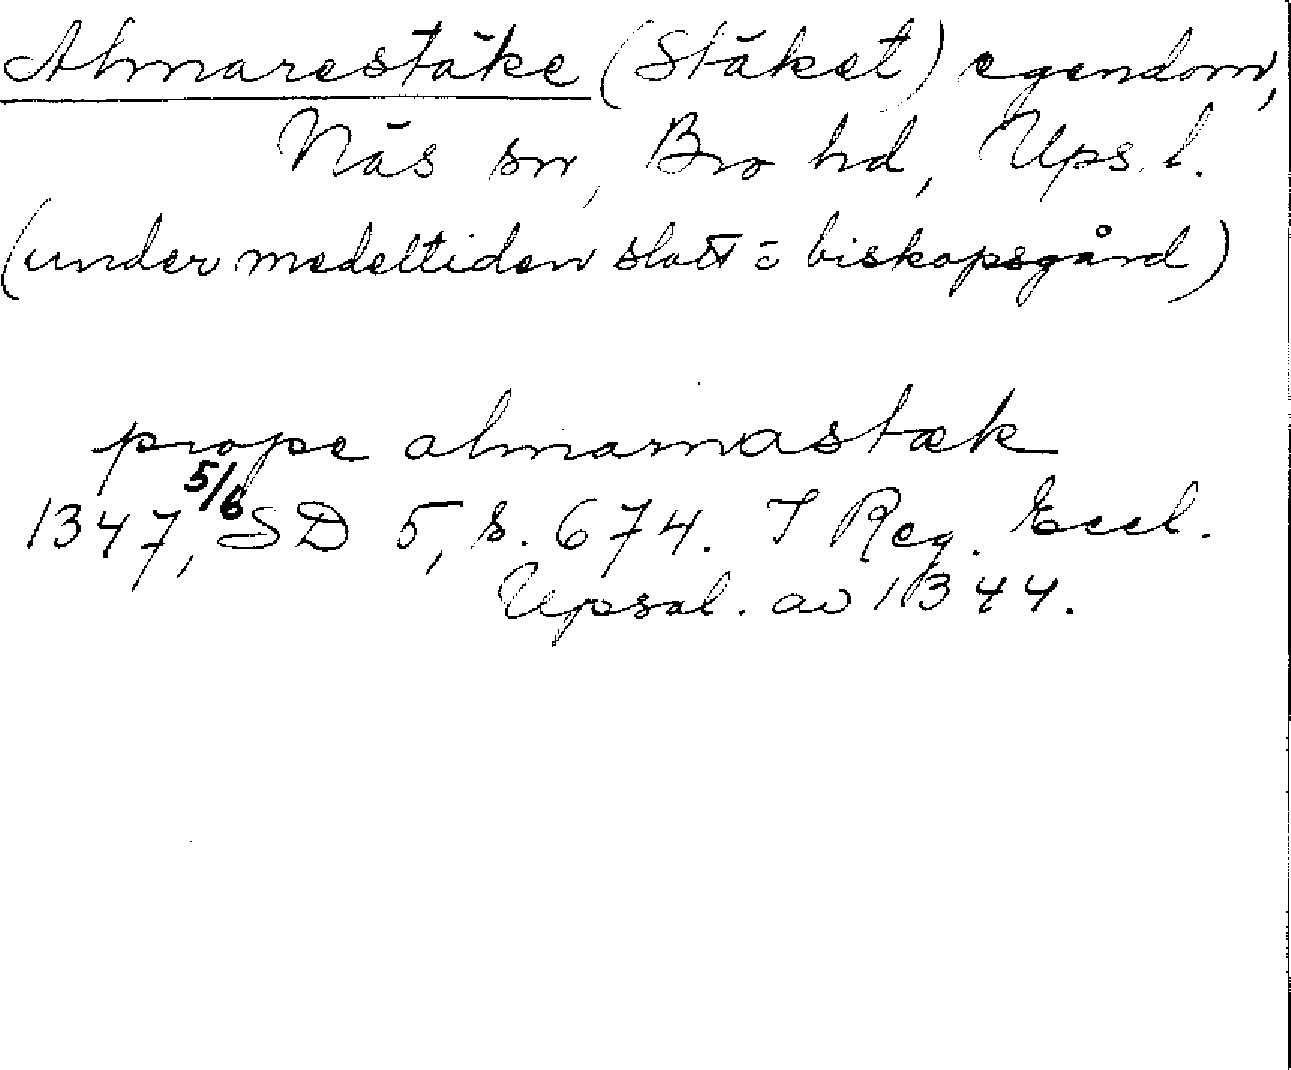 Almarestäke (Stäket) egendom,
Näs sn, Bro hd, Ups. l.
(under medeltiden slott = biskopsgård)
prope almarnastæk
1347, 5/6 SD 5, s. 674. I Reg. Eccl.
Upsal. av 1344.